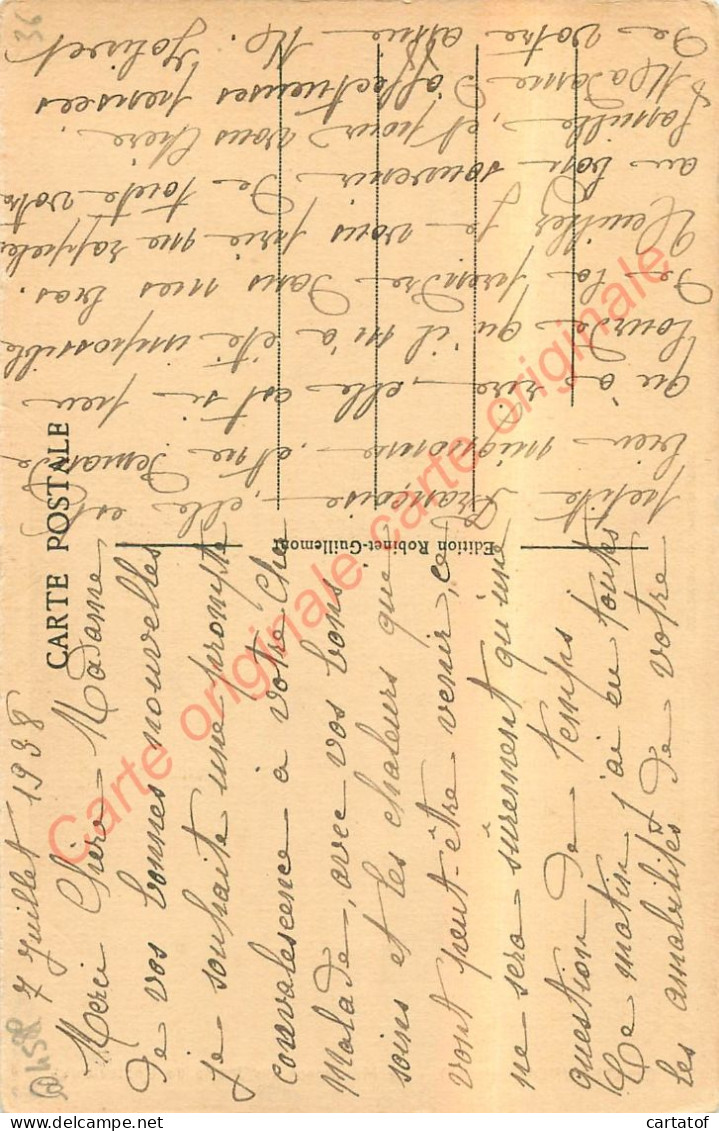 36
@458
CARTE POSTALE
Edition Robinet-Guillemont
7 Juillet 1938
Merci Chère Madame,
de vos bonnes nouvelles
je souhaite une prompte
convalescence à votre Chè
Malade, avec vos bons
soins et les chaleurs que
vont peut-être venir, ce
ne sera sûrement qu'une
question de temps;
Ce matin j'ai eu toutes
les amabilités de votre
petite Françoise, elle est
bien mignonne, et ne demande
qu'à rire, elle est si peu
lourde qu'il m'a été impossible
de la prendre dans mes bras.
Veuillez je vous prie me rappeler
au bon souvenir de toute votre
famille, et pour vous Chère
Madame d'affectueuses pensées
de votre amie M. Jolivet
Carte originale carte originale
cartatof